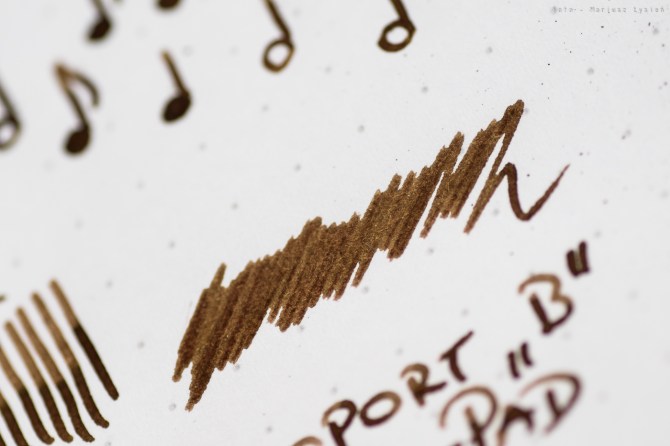 foto - Mariusz Lysiak
PORT "B"
PAD